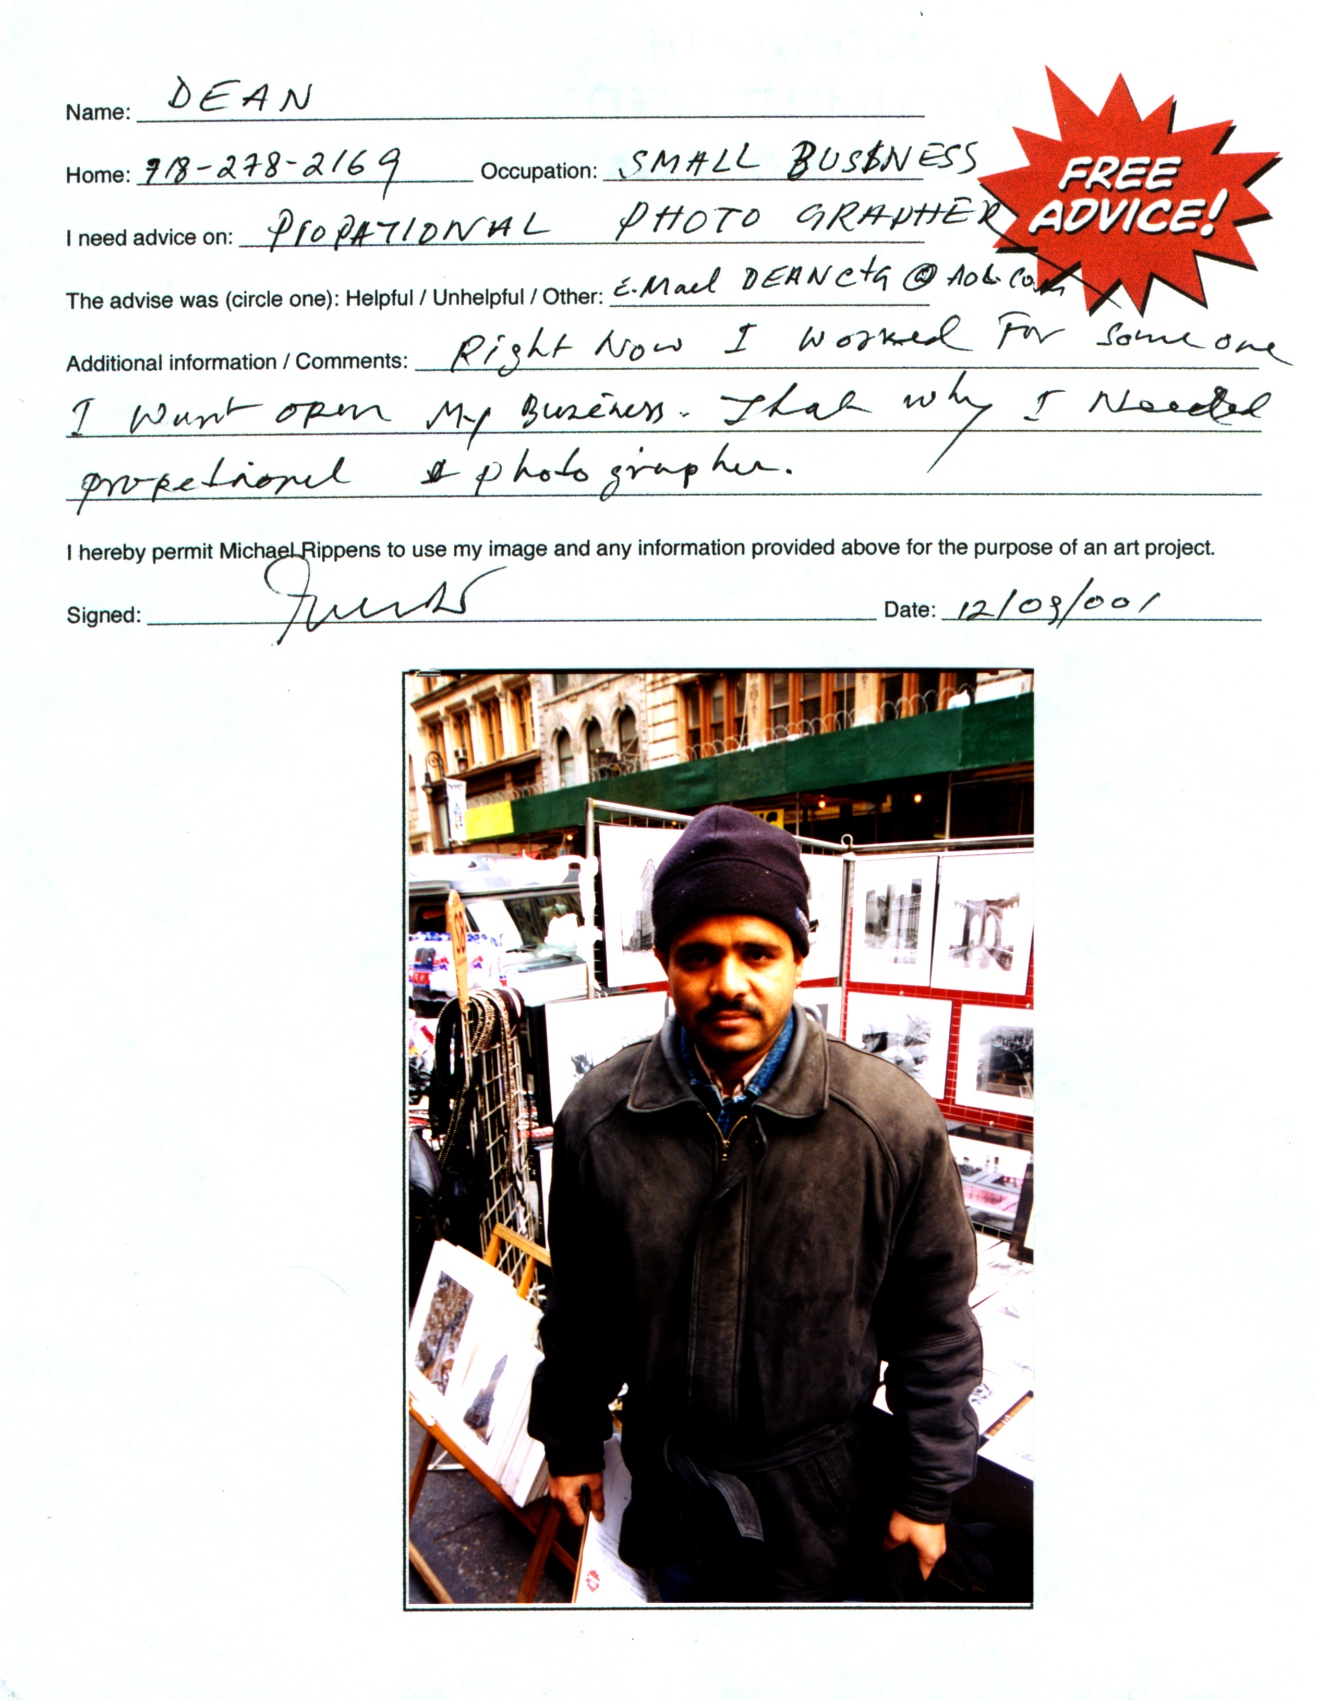 Name: DEAN
FREE ADVICE!
Home: 718-278-2169 Occupation: SMALL BUSBNESS
I need advice on: PROPATIONAL PHOTO GRAPHER
The advise was (circle one): Helpful / Unhelpful / Other: E.Mael DEANCtG @ AoL.Com
Additional information / Comments: Right Now I worked For Someone
I Want open My Business. That why I Needed
propetional photo grapher.
I hereby permit Michael Rippens to use my image and any information provided above for the purpose of an art project.
Signed:
Date: 12/09/001